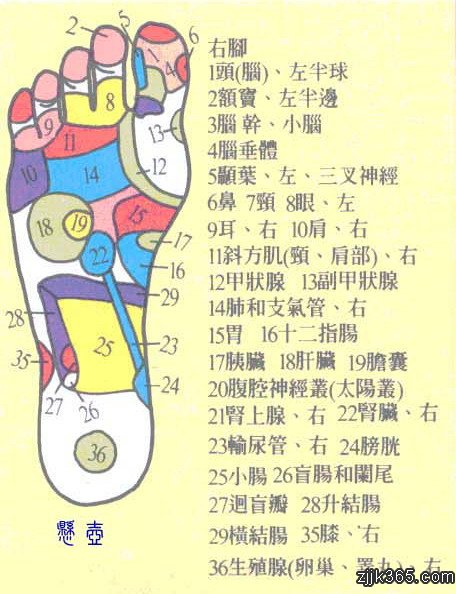 右腳
1頭(腦)、左半球
2額竇、左半邊
3腦 幹、小腦
4腦垂體
5顳葉、左、三叉神經
6鼻 7頸 8眼、左
9耳、右 10肩、右
11斜方肌(頸、肩部)、右
12甲狀腺 13副甲狀腺
14肺和支氣管、右
15胃 16十二指腸
17胰臟 18肝臟 19膽囊
20腹腔神經叢(太陽叢)
21腎上腺、右 22腎臟、右
23輸尿管、右 24膀胱
25小腸 26盲腸和闌尾
27迴盲瓣 28升結腸
29橫結腸 35膝、右
36生殖腺(卵巢、睪丸)、右
2
5
6
4
8
9
13
11
10
14
12
15
18
19
17
22
16
29
28
25
23
35
24
27
26
36
懸壺
zjjk365.com